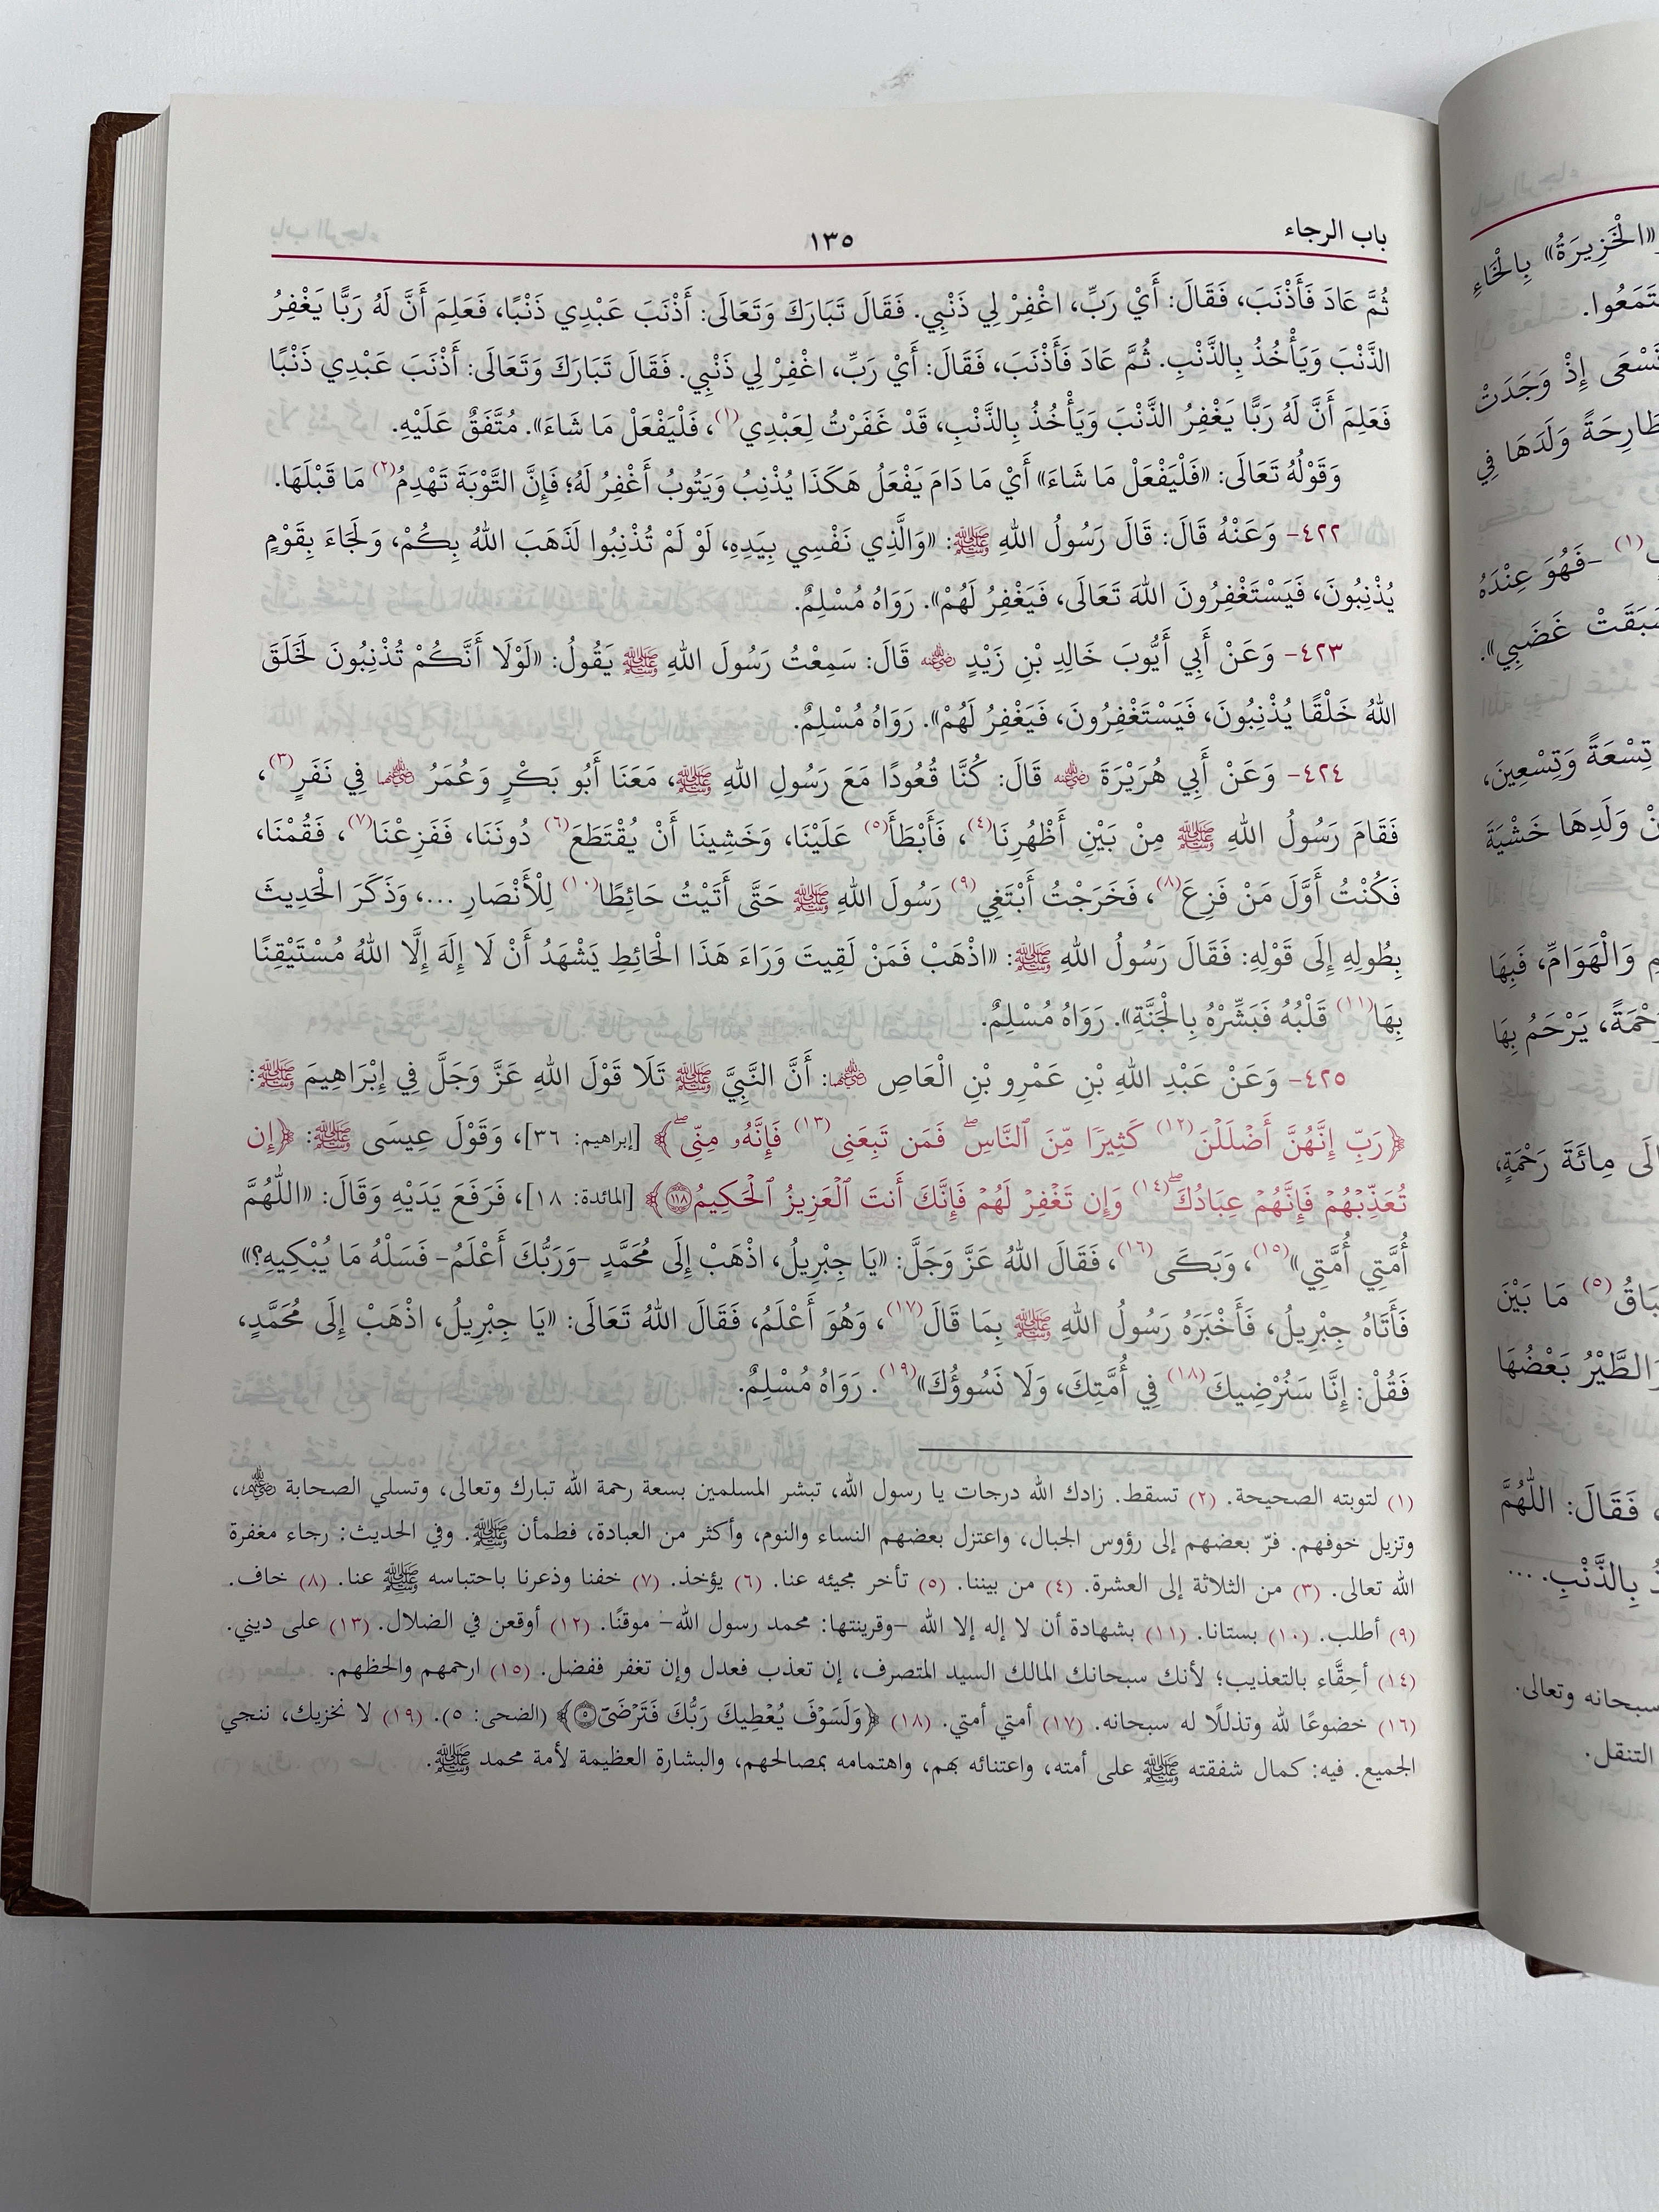 باب الرجاء
١٣٥
ثُمَّ عَادَ فَأَذْنَبَ، فَقَالَ: أَيْ رَبِّ، اغْفِرْ لِي ذَنْبِي. فَقَالَ تَبَارَكَ وَتَعَالَى: أَذْنَبَ عَبْدِي ذَنْبًا، فَعَلِمَ أَنَّ لَهُ رَبًّا يَغْفِرُ
الذَّنْبَ وَيَأْخُذُ بِالذَّنْبِ. ثُمَّ عَادَ فَأَذْنَبَ، فَقَالَ: أَيْ رَبِّ، اغْفِرْ لِي ذَنْبِي. فَقَالَ تَبَارَكَ وَتَعَالَى: أَذْنَبَ عَبْدِي ذَنْبًا
فَعَلِمَ أَنَّ لَهُ رَبًّا يَغْفِرُ الذَّنْبَ وَيَأْخُذُ بِالذَّنْبِ، قَدْ غَفَرْتُ لِعَبْدِي(١)، فَلْيَفْعَلْ مَا شَاءَ». مُتَّفَقٌ عَلَيْهِ.
وَقَوْلُهُ تَعَالَى: «فَلْيَفْعَلْ مَا شَاءَ» أَيْ مَا دَامَ يَفْعَلُ هَكَذَا يُذْنِبُ وَيَتُوبُ أَغْفِرُ لَهُ؛ فَإِنَّ التَّوْبَةَ تَهْدِمُ(٢) مَا قَبْلَهَا.
٤٢٢- وَعَنْهُ قَالَ: قَالَ رَسُولُ اللهِ ﷺ: «وَالَّذِي نَفْسِي بِيَدِهِ، لَوْ لَمْ تُذْنِبُوا لَذَهَبَ اللهُ بِكُمْ، وَلَجَاءَ بِقَوْمٍ
يُذْنِبُونَ، فَيَسْتَغْفِرُونَ اللهَ تَعَالَى، فَيَغْفِرُ لَهُمْ». رَوَاهُ مُسْلِمٌ.
٤٢٣- وَعَنْ أَبِي أَيُّوبَ خَالِدِ بْنِ زَيْدٍ رضي الله عنه قَالَ: سَمِعْتُ رَسُولَ اللهِ ﷺ يَقُولُ: «لَوْلَا أَنَّكُمْ تُذْنِبُونَ لَخَلَقَ
اللهُ خَلْقًا يُذْنِبُونَ، فَيَسْتَغْفِرُونَ، فَيَغْفِرُ لَهُمْ». رَوَاهُ مُسْلِمٌ.
٤٢٤- وَعَنْ أَبِي هُرَيْرَةَ رضي الله عنه قَالَ: كُنَّا قُعُودًا مَعَ رَسُولِ اللهِ ﷺ، مَعَنَا أَبُو بَكْرٍ وَعُمَرُ رضي الله عنهما فِي نَفَرٍ(٣)،
فَقَامَ رَسُولُ اللهِ ﷺ مِنْ بَيْنِ أَظْهُرِنَا(٤)، فَأَبْطَأَ(٥) عَلَيْنَا، وَخَشِينَا أَنْ يُقْتَطَعَ(٦) دُونَنَا، فَفَزِعْنَا(٧)، فَقُمْنَا،
فَكُنْتُ أَوَّلَ مَنْ فَزِعَ(٨)، فَخَرَجْتُ أَبْتَغِي(٩) رَسُولَ اللهِ ﷺ حَتَّى أَتَيْتُ حَائِطًا(١٠) لِلْأَنْصَارِ ...، وَذَكَرَ الْحَدِيثَ
بِطُولِهِ إِلَى قَوْلِهِ: فَقَالَ رَسُولُ اللهِ ﷺ: «اذْهَبْ فَمَنْ لَقِيتَ وَرَاءَ هَذَا الْحَائِطِ يَشْهَدُ أَنْ لَا إِلَهَ إِلَّا اللهُ مُسْتَيْقِنًا
بِهَا(١١) قَلْبُهُ فَبَشِّرْهُ بِالْجَنَّةِ». رَوَاهُ مُسْلِمٌ.
٤٢٥- وَعَنْ عَبْدِ اللهِ بْنِ عَمْرِو بْنِ الْعَاصِ رضي الله عنهما: أَنَّ النَّبِيَّ ﷺ تَلَا قَوْلَ اللهِ عَزَّ وَجَلَّ فِي إِبْرَاهِيمَ ﷺ:
﴿رَبِّ إِنَّهُنَّ أَضْلَلْنَ(١٢) كَثِيرًا مِّنَ ٱلنَّاسِۖ فَمَن تَبِعَنِى(١٣) فَإِنَّهُۥ مِنِّىۖ﴾ [إبراهيم: ٣٦]، وَقَوْلَ عِيسَى ﷺ: ﴿إِن
تُعَذِّبْهُمْ فَإِنَّهُمْ عِبَادُكَۖ(١٤) وَإِن تَغْفِرْ لَهُمْ فَإِنَّكَ أَنتَ ٱلْعَزِيزُ ٱلْحَكِيمُ ١١٨﴾ [المائدة: ١٨]، فَرَفَعَ يَدَيْهِ وَقَالَ: «اللَّهُمَّ
أُمَّتِي أُمَّتِي»(١٥)، وَبَكَى(١٦)، فَقَالَ اللهُ عَزَّ وَجَلَّ: «يَا جِبْرِيلُ، اذْهَبْ إِلَى مُحَمَّدٍ -وَرَبُّكَ أَعْلَمُ- فَسَلْهُ مَا يُبْكِيهِ؟»
فَأَتَاهُ جِبْرِيلُ، فَأَخْبَرَهُ رَسُولُ اللهِ ﷺ بِمَا قَالَ(١٧)، وَهُوَ أَعْلَمُ، فَقَالَ اللهُ تَعَالَى: «يَا جِبْرِيلُ، اذْهَبْ إِلَى مُحَمَّدٍ،
فَقُلْ: إِنَّا سَنُرْضِيكَ(١٨) فِي أُمَّتِكَ، وَلَا نَسُوؤُكَ»(١٩). رَوَاهُ مُسْلِمٌ.
(١) لتوبته الصحيحة. (٢) تسقط. زادك الله درجات يا رسول الله، تبشر المسلمين بسعة رحمة الله تبارك وتعالى، وتسلي الصحابة رضي الله عنهم،
وتزيل خوفهم. فرّ بعضهم إلى رؤوس الجبال، واعتزل بعضهم النساء والنوم، وأكثر من العبادة، فطمأن ﷺ. وفي الحديث: رجاء مغفرة
الله تعالى. (٣) من الثلاثة إلى العشرة. (٤) من بيننا. (٥) تأخر مجيئه عنا. (٦) يؤخذ. (٧) خفنا وذعرنا باحتباسه ﷺ عنا. (٨) خاف.
(٩) أطلب. (١٠) بستانا. (١١) بشهادة أن لا إله إلا الله -وقرينتها: محمد رسول الله- موقنًا. (١٢) أوقعن في الضلال. (١٣) على ديني.
(١٤) أحقَّاء بالتعذيب؛ لأنك سبحانك المالك السيد المتصرف، إن تعذب فعدل وإن تغفر ففضل. (١٥) ارحمهم والحظهم.
(١٦) خضوعًا لله وتذللًا له سبحانه. (١٧) أمتي أمتي. (١٨) ﴿وَلَسَوْفَ يُعْطِيكَ رَبُّكَ فَتَرْضَىٰٓ ٥﴾ (الضحى: ٥). (١٩) لا نخزيك، ننجي
الجميع. فيه: كمال شفقته ﷺ على أمته، واعتنائه بهم، واهتمامه بمصالحهم، والبشارة العظيمة لأمة محمد ﷺ.
«الْخَزِيرَةُ» بِالْخَاءِ
تَسْعَى إِذْ وَجَدَتْ
وَلَدَهَا فِي
(١) -فَهُوَ عِنْدَهُ
غَضَبِي».
تِسْعَةً وَتِسْعِينَ،
وَلَدِهَا خَشْيَةَ
وَالْهَوَامِّ، فَبِهَا
يَرْحَمُ بِهَا
مِائَةَ رَحْمَةٍ،
(٥) مَا بَيْنَ
بَعْضُهَا
فَقَالَ: اللَّهُمَّ
بِالذَّنْبِ. ...
سبحانه وتعالى.
التنقل.